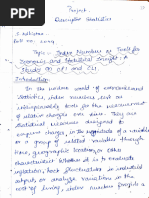 Project.
Descriptive Statistics
Topic - Index Numbers as Tools for
Economic and Statistical Insight: A
Studies on CPI and CLI
Introduction:
In the modern world of economics and
Statistics, index numbers, act as
indispensable tools for the measurement
of relative changes over time. They are
Statistical measures designed to
express changes in the magnitude of a variable
or group of related variables through
time, geographic location or other
characteristics. Whether it is to evaluate
inflation, track fluctuations in industrial
outputs or analyze variations in the
cost of living, index number provides a